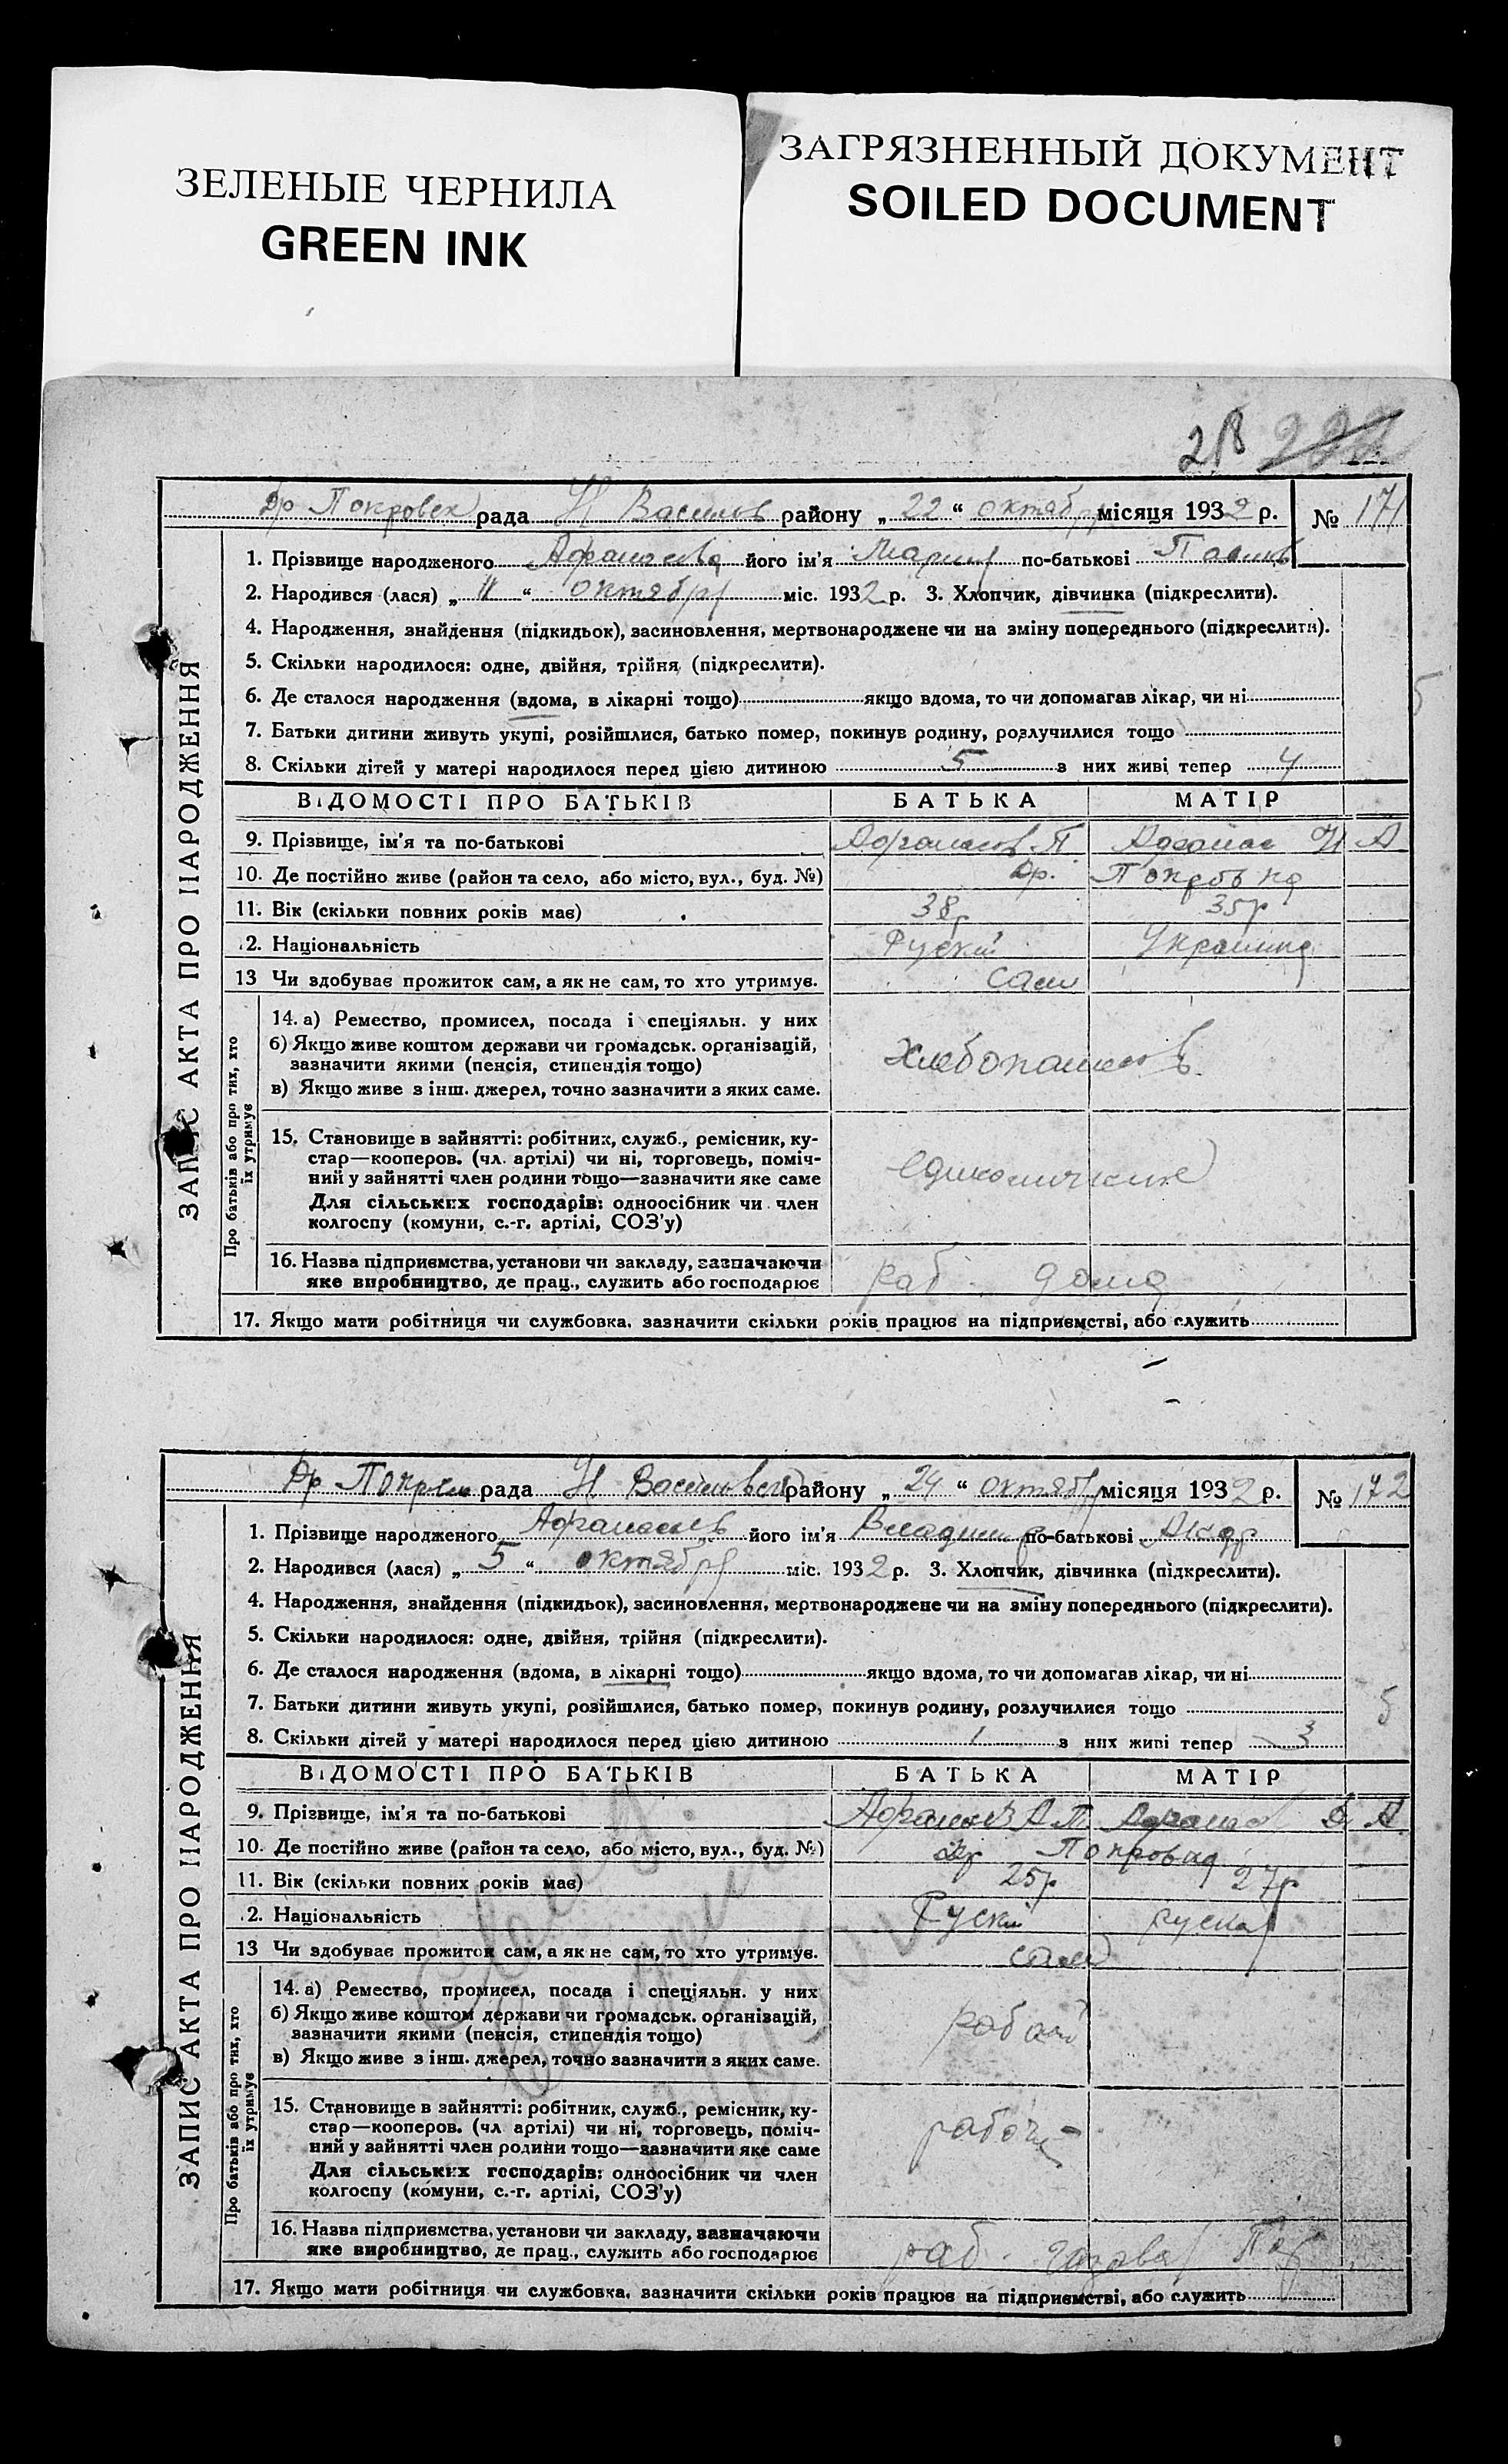 ЗЕЛЕНЫЕ ЧЕРНИЛА
GREEN INK
ЗАГРЯЗНЕННЫЙ ДОКУМЕНТ
SOILED DOCUMENT
222
ЗАПИС АКТА ПРО НАРОДЖЕННЯ
Др Покровск рада Н Василов району „22“ октября місяця 1932 р. № 171
1. Прізвище народженого Афанасева його ім'я Мария по-батькові
2. Народився (лася) „11“ октября міс. 1932 р. 3. Хлопчик, дівчинка (підкреслити).
4. Народження, знайдення (підкидьок), засиновлення, мертвонароджене чи на зміну попереднього (підкреслити).
5. Скільки народилося: одне, двійня, трійня (підкреслити).
6. Де сталося народження (вдома, в лікарні тощо) якщо вдома, то чи допомагав лікар, чи ні
7. Батьки дитини живуть укупі, розійшлися, батько помер, покинув родину, розлучилися тощо
8. Скільки дітей у матері народилося перед цією дитиною 5 з них живі тепер 4
ВІДОМОСТІ ПРО БАТЬКІВ БАТЬКА МАТІР
9. Прізвище, ім'я та по-батькові Афанасов П А
10. Де постійно живе (район та село, або місто, вул., буд. №) Др. Покровка
11. Вік (скільки повних років має) 38р 35р
.2. Національність Руский Украинка
13 Чи здобуває прожиток сам, а як не сам, то хто утримує. сам
Про батьків або про тих, хто їх утримує
14. а) Ремество, промисел, посада і спеціяльн. у них
б) Якщо живе коштом держави чи громадськ. організацій,
зазначити якими (пенсія, стипендія тощо)
в) Якщо живе з інш. джерел, точно зазначити з яких саме.
15. Становище в зайнятті: робітник, служб., ремісник, ку-
стар—кооперов. (чл. артілі) чи ні, торговець, поміч-
ний у зайнятті член родини тощо—зазначити яке саме
Для сільських господарів: одноосібник чи член
колгоспу (комуни, с.-г. артілі, СОЗ'у)
16. Назва підприємства, установи чи закладу, зазначаючи
яке виробництво, де прац., служить або господарює раб. дома
17. Якщо мати робітниця чи службовка, зазначити скільки років працює на підприємстві, або служить
ЗАПИС АКТА ПРО НАРОДЖЕННЯ
Др рада Н Василовск району „24“ октября місяця 1932 р. № 172
1. Прізвище народженого Афанасьев його ім'я Владимир по-батькові
2. Народився (лася) „5“ октября міс. 1932 р. 3. Хлопчик, дівчинка (підкреслити).
4. Народження, знайдення (підкидьок), засиновлення, мертвонароджене чи на зміну попереднього (підкреслити).
5. Скільки народилося: одне, двійня, трійня (підкреслити).
6. Де сталося народження (вдома, в лікарні тощо) якщо вдома, то чи допомагав лікар, чи ні
7. Батьки дитини живуть укупі, розійшлися, батько помер, покинув родину, розлучилися тощо
8. Скільки дітей у матері народилося перед цією дитиною 1 з них живі тепер 3
5
ВІДОМОСТІ ПРО БАТЬКІВ БАТЬКА МАТІР
9. Прізвище, ім'я та по-батькові А.П. А
10. Де постійно живе (район та село, або місто, вул., буд. №) Др Покровка
11. Вік (скільки повних років має) 25р 27р
.2. Національність Руский руская
13 Чи здобуває прожиток сам, а як не сам, то хто утримує. сам
Про батьків або про тих, хто їх утримує
14. а) Ремество, промисел, посада і спеціяльн. у них
б) Якщо живе коштом держави чи громадськ. організацій,
зазначити якими (пенсія, стипендія тощо)
в) Якщо живе з інш. джерел, точно зазначити з яких саме.
15. Становище в зайнятті: робітник, служб., ремісник, ку-
стар—кооперов. (чл. артілі) чи ні, торговець, поміч-
ний у зайнятті член родини тощо—зазначити яке саме
Для сільських господарів: одноосібник чи член
колгоспу (комуни, с.-г. артілі, СОЗ'у)
16. Назва підприємства, установи чи закладу, зазначаючи
яке виробництво, де прац., служить або господарює раб.
17. Якщо мати робітниця чи службовка, зазначити скільки років працює на підприємстві, або служить